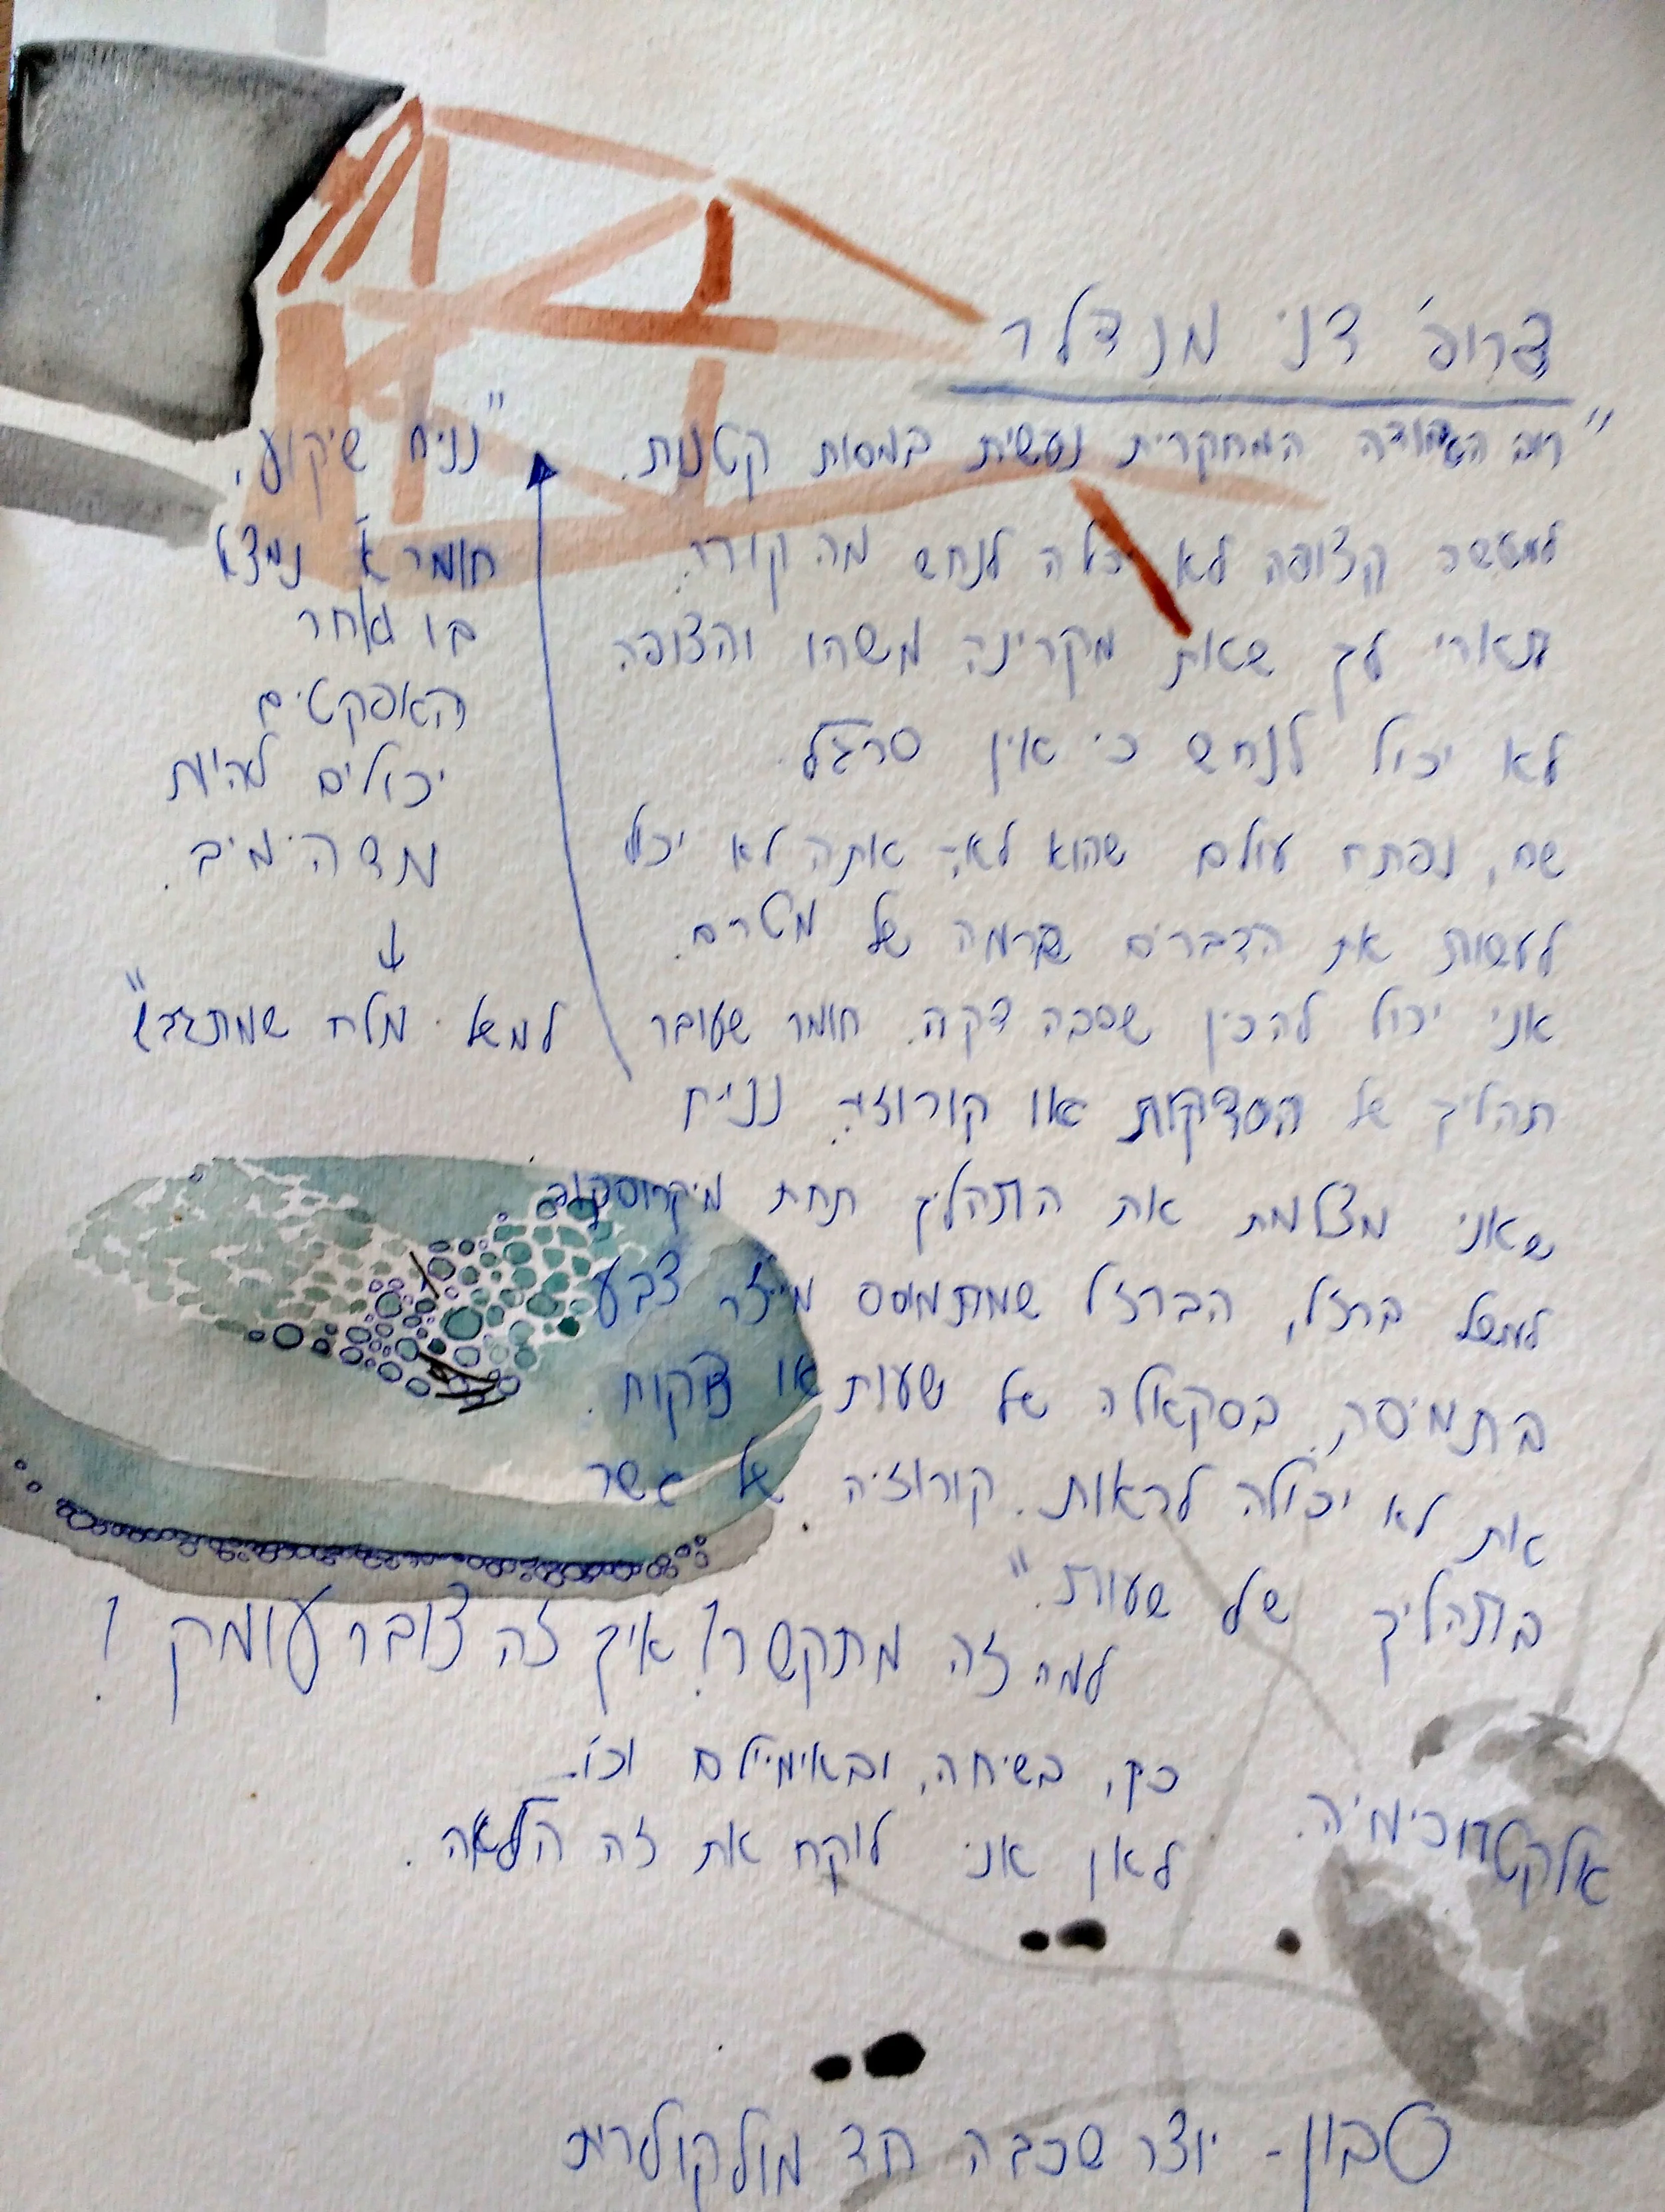 פרופ' דני מנדלר
"רוב העבודה המחקרית נעשית במסות קטנות.
למעשה הצופה לא יכלה לנחש מה קורה.
תארי לך שאת מקרינה משהו והצופה
לא יכול לנחש כי אין סרגל.
שם, נפתח עולם שהוא לא- אתה לא יכול
לעשות את הדברים ברמה של מטרים.
אני יכול להכין שכבה דקה. חומר שעובר
תהליך של הסדקות או קורוזיה. נניח
שאני מצלמת את התהליך תחת מיקרוסקופ
למשל ברזל, הברזל שמתמוסס מייצר צבע
בתמיסה. בסקאלה של שעות או פחות.
את לא יכולה לראות. קורוזיה של גשר
בתהליך של שעות."
"נניח שיקוע.
חומר א' נמצא
בו ואחר
האפקטים
יכולים להיות
מדהימים.
↓
למשל מלח שמתגבש"
למה זה מתקשר? איך זה צובר עומק?
כק, בשיחה, ובאימיילים וכו'.
לאן אני לוקח את זה הלאה.
אלקטרוכימיה.
סבון - יוצר שכבה חד מולקולרית